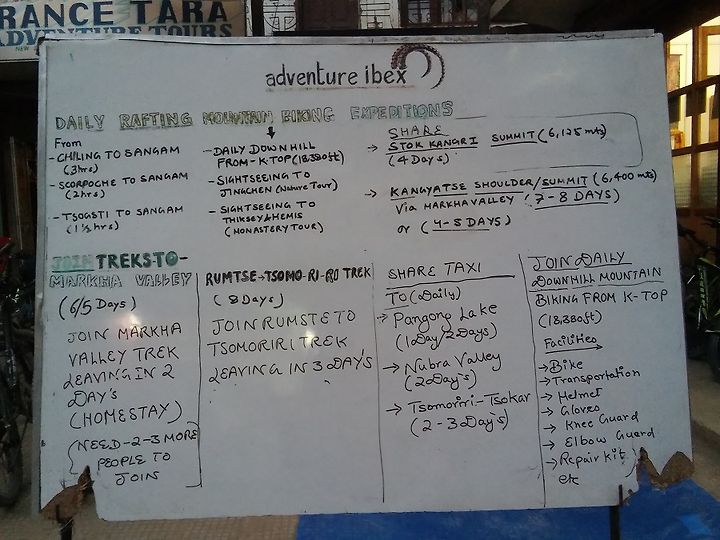 RANCE TARA
ADVENTURE TOURS
adventure ibex
DAILY RAFTING MOUNTAIN BIKING EXPEDITIONS
From
- CHILING TO SANGAM
(3hrs)
- SCORPOCHE TO SANGAM
(2hrs)
- TSOGSTI TO SANGAM
(1½hrs)
- DAILY DOWNHILL
FROM - K-TOP (18,380ft)
- SIGHTSEEING TO
JINGCHEN (Nature Tour)
- SIGHTSEEING TO
THIKSEY & HEMIS
(MONASTERY TOUR)
SHARE
→ STOK KANGRI SUMMIT (6,125 mts)
(4 Days)
→ KANGYATSE SHOULDER/SUMMIT (6,400 mts)
Via MARKHA VALLEY (7-8 DAYS)
or (4-5 DAYS)
JOIN TREKS TO-
MARKHA VALLEY
(6/5 Days)
JOIN MARKHA
VALLEY TREK
LEAVING IN 2
DAY's
(HOMESTAY)
(NEED -2-3 MORE
PEOPLE TO
JOIN
RUMTSE → TSOMO-RI-RI TREK
(8 DAYS)
JOIN RUMSTE TO
TSOMORIRI TREK
LEAVING IN 3 DAY'S
SHARE TAXI
TO (Daily)
→ Pangong Lake
(1Day/2Days)
→ Nubra Valley
(2Day's)
→ Tsomoriri-Tsokar
(2-3 Day's)
JOIN DAILY
DOWNHILL MOUNTAIN
BIKING FROM K-TOP
(18,380ft)
Facilities
→ Bike
→ Transportation
→ Helmet
→ Gloves
→ Knee Guard
→ Elbow Guard
→ Repair Kit
etc